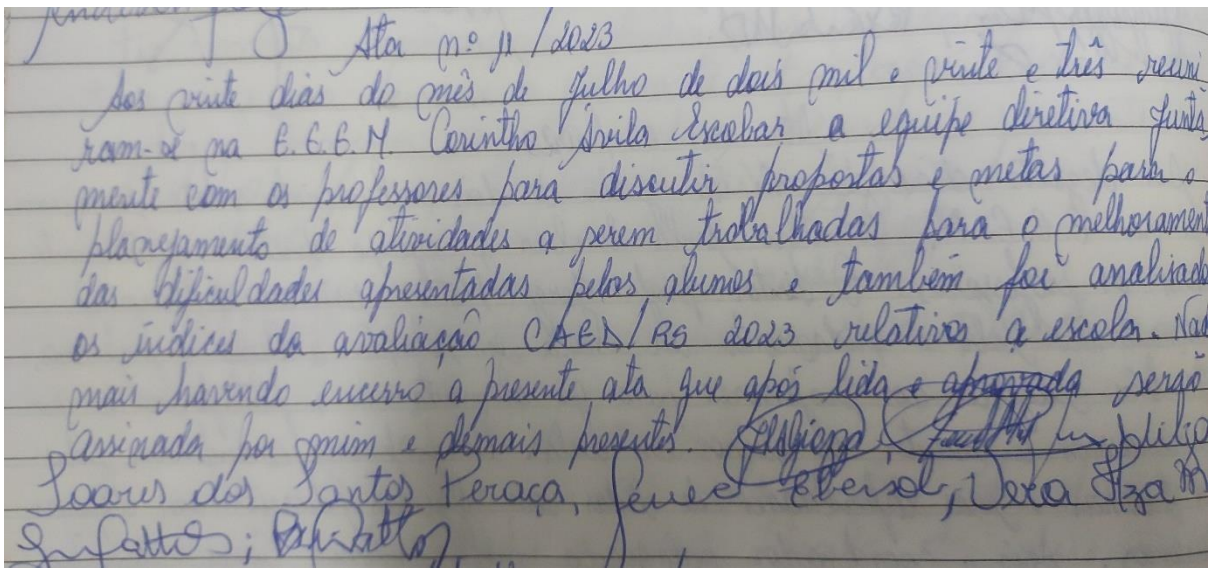 Ata nº 11/2023
Aos vinte dias do mês de Julho de dois mil e vinte e três reuni
ram-se na E.E.E.M. Corintho Ávila Escobar a equipe diretiva junta
mente com os professores para discutir propostas e metas para o
planejamento de atividades a serem trabalhadas para o melhorament
das dificuldades apresentadas pelos alunos e também foi analisado
os índices da avaliação CAED/RS 2023 relativos a escola. Nad
mais havendo encerro a presente ata que após lida e aprovada sergo
assinada por mim e demais presentes.
Soares dos Santos Peraça, Vera